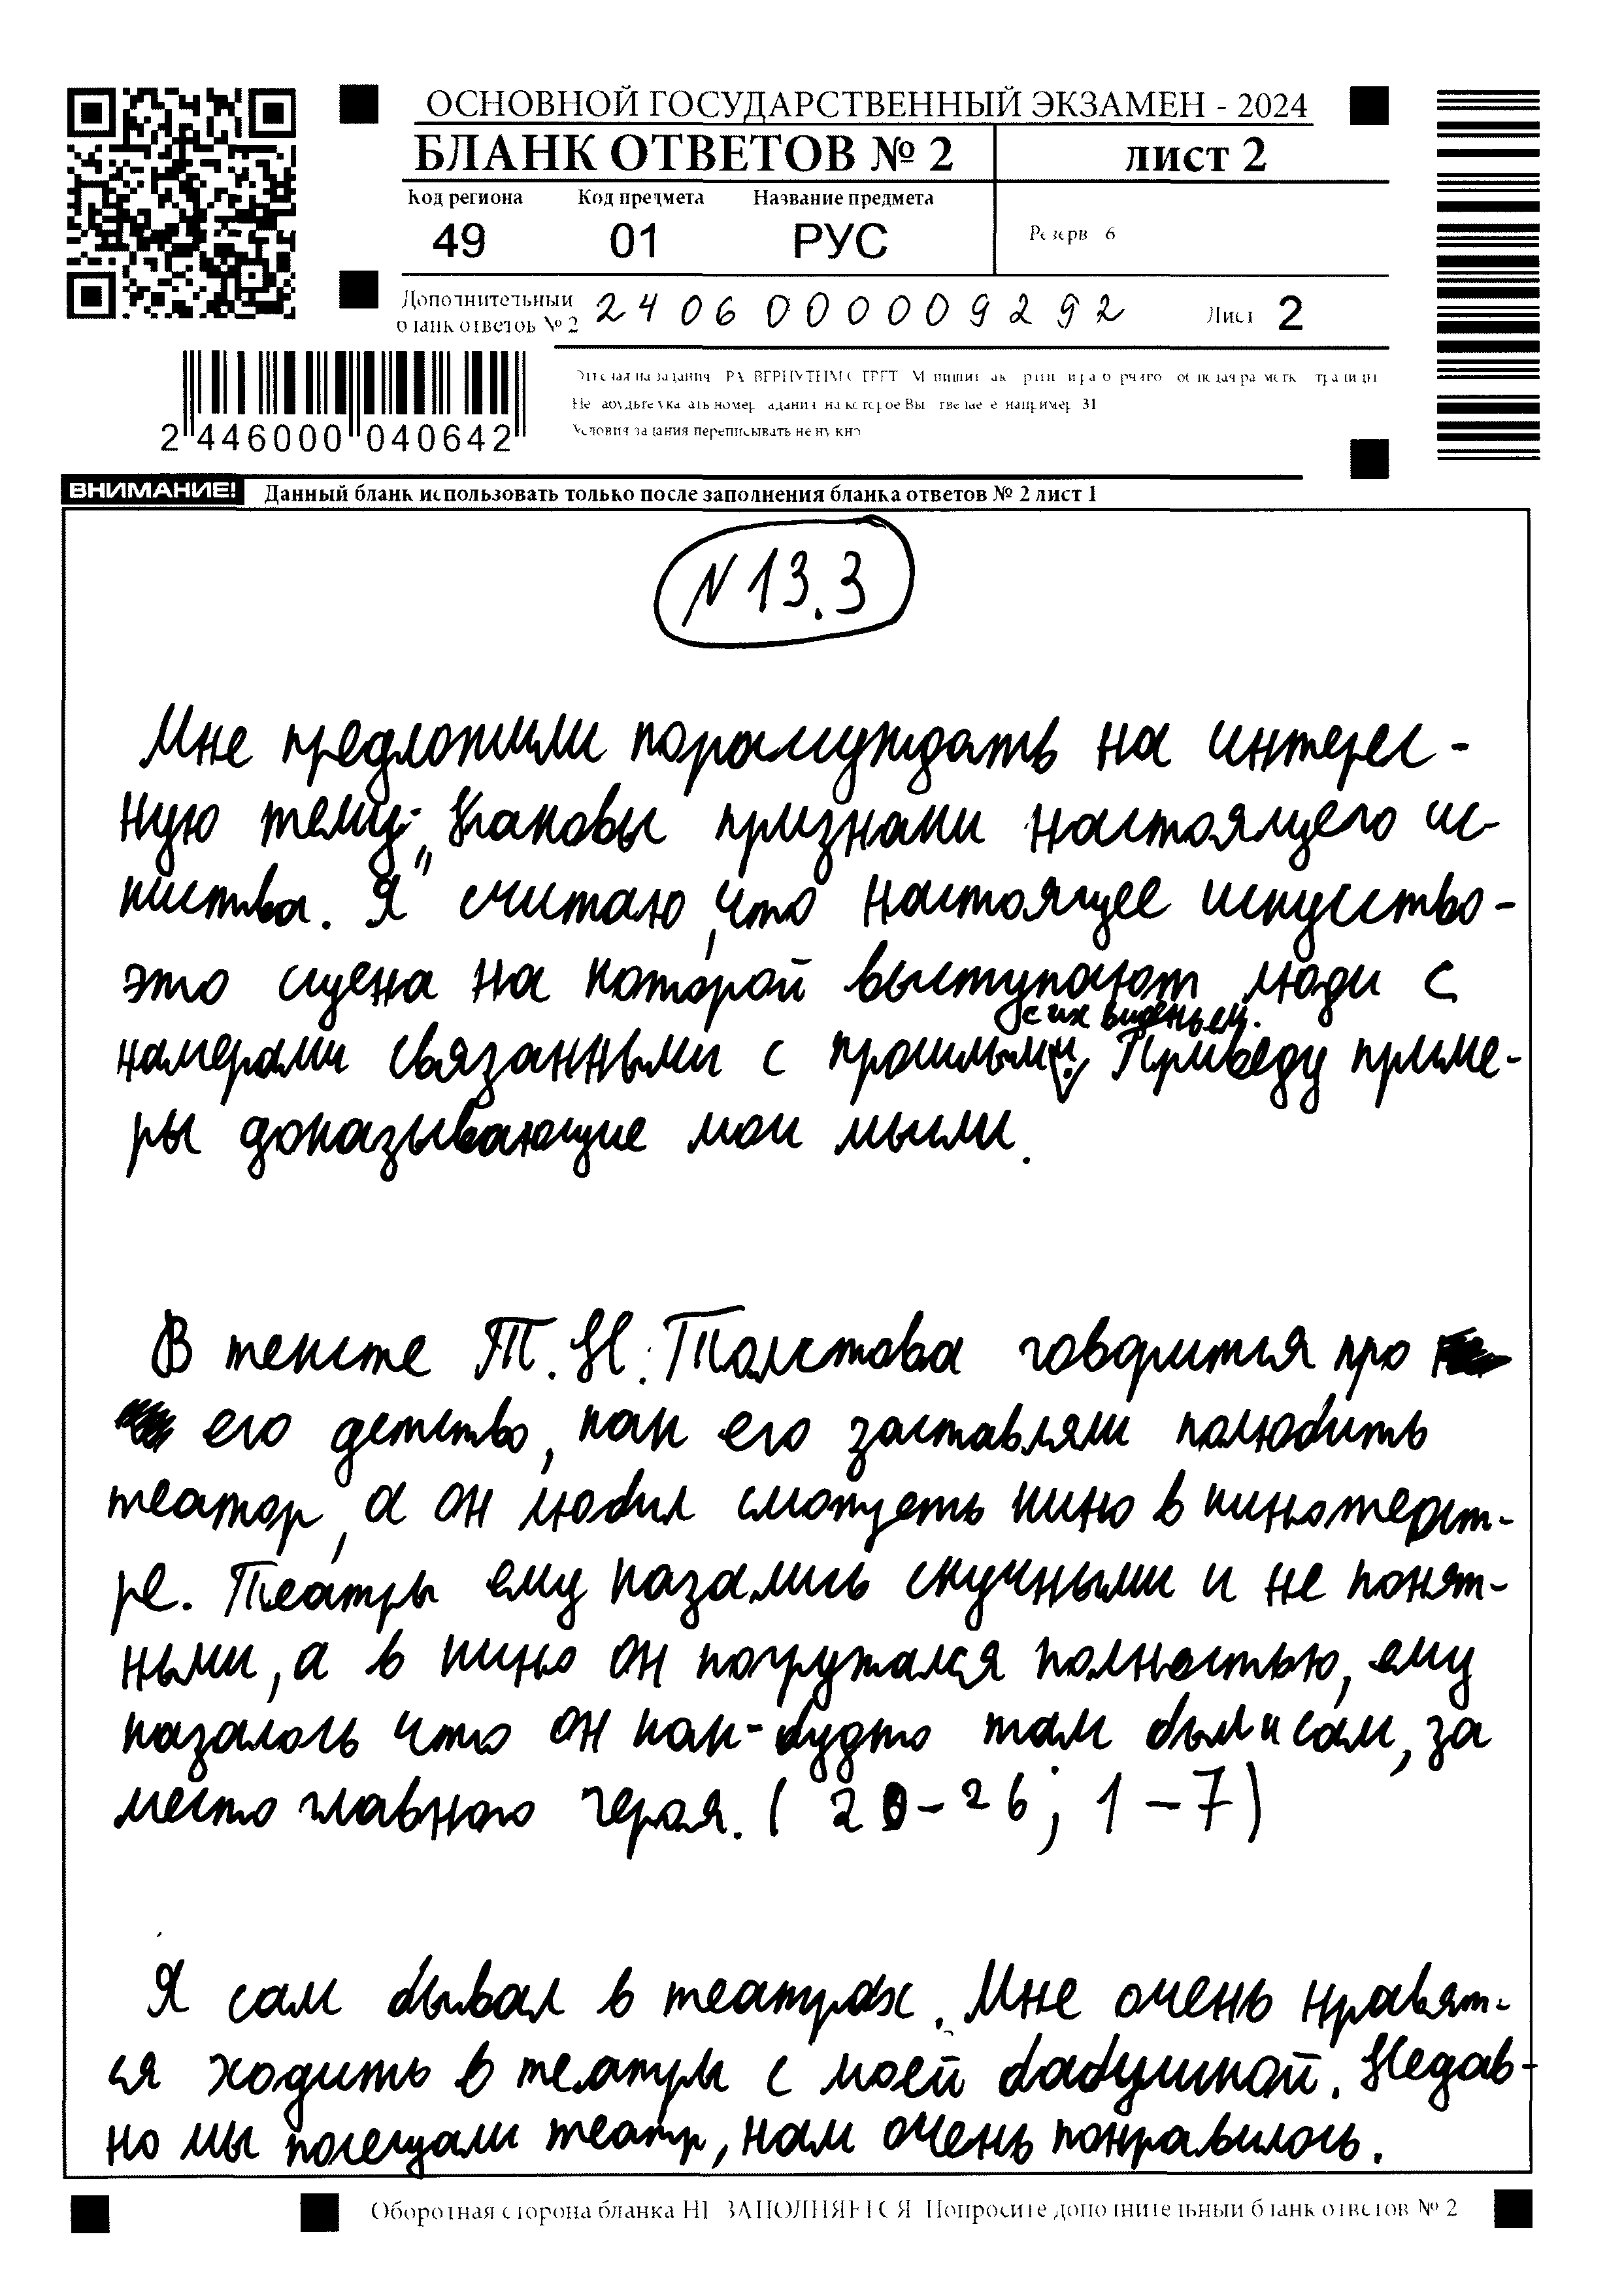 ОСНОВНОЙ ГОСУДАРСТВЕННЫЙ ЭКЗАМЕН - 2024
БЛАНК ОТВЕТОВ № 2
лист 2
Код региона Код предмета Название предмета
49 01 РУС
Резерв 6
Дополнительный
бланк ответов № 2
2406000009292
Лист 2
2 446000 040642
Не забудьте указать номер задания на которое Вы отвечаете например 31
Условия задания переписывать не нужно
ВНИМАНИЕ! Данный бланк использовать только после заполнения бланка ответов № 2 лист 1
N 13.3
Мне предложили порасуждать на интерес-
ную тему: „Каковы признаки настоящего ис-
куства. Я" считаю, что настоящее искусство-
это сцена на которой выступают люди с
с их виденьем.
намерами связанными с прошлыми. Приведу приме-
ры доказывающие мои мысли.
В тексте Т. Н. Толстова говорится про
его детство, как его заставляли полюбить
театор, а он любил смотреть кино в кинотеат-
ре. Театры ему казались скучными и не понят-
ными, а в кино он погружался полностью, ему
казалось что он как-будто там был и сам, за
место главного героя. (20-26; 1-7)
Я сам бывал в театрах. Мне очень нравят-
ся ходить в театры с моей бабушкой. Недав-
но мы посещали театр, нам очень понравилось.
Оборотная сторона бланка НЕ ЗАПОЛНЯЕТСЯ Попросите дополнительный бланк ответов № 2